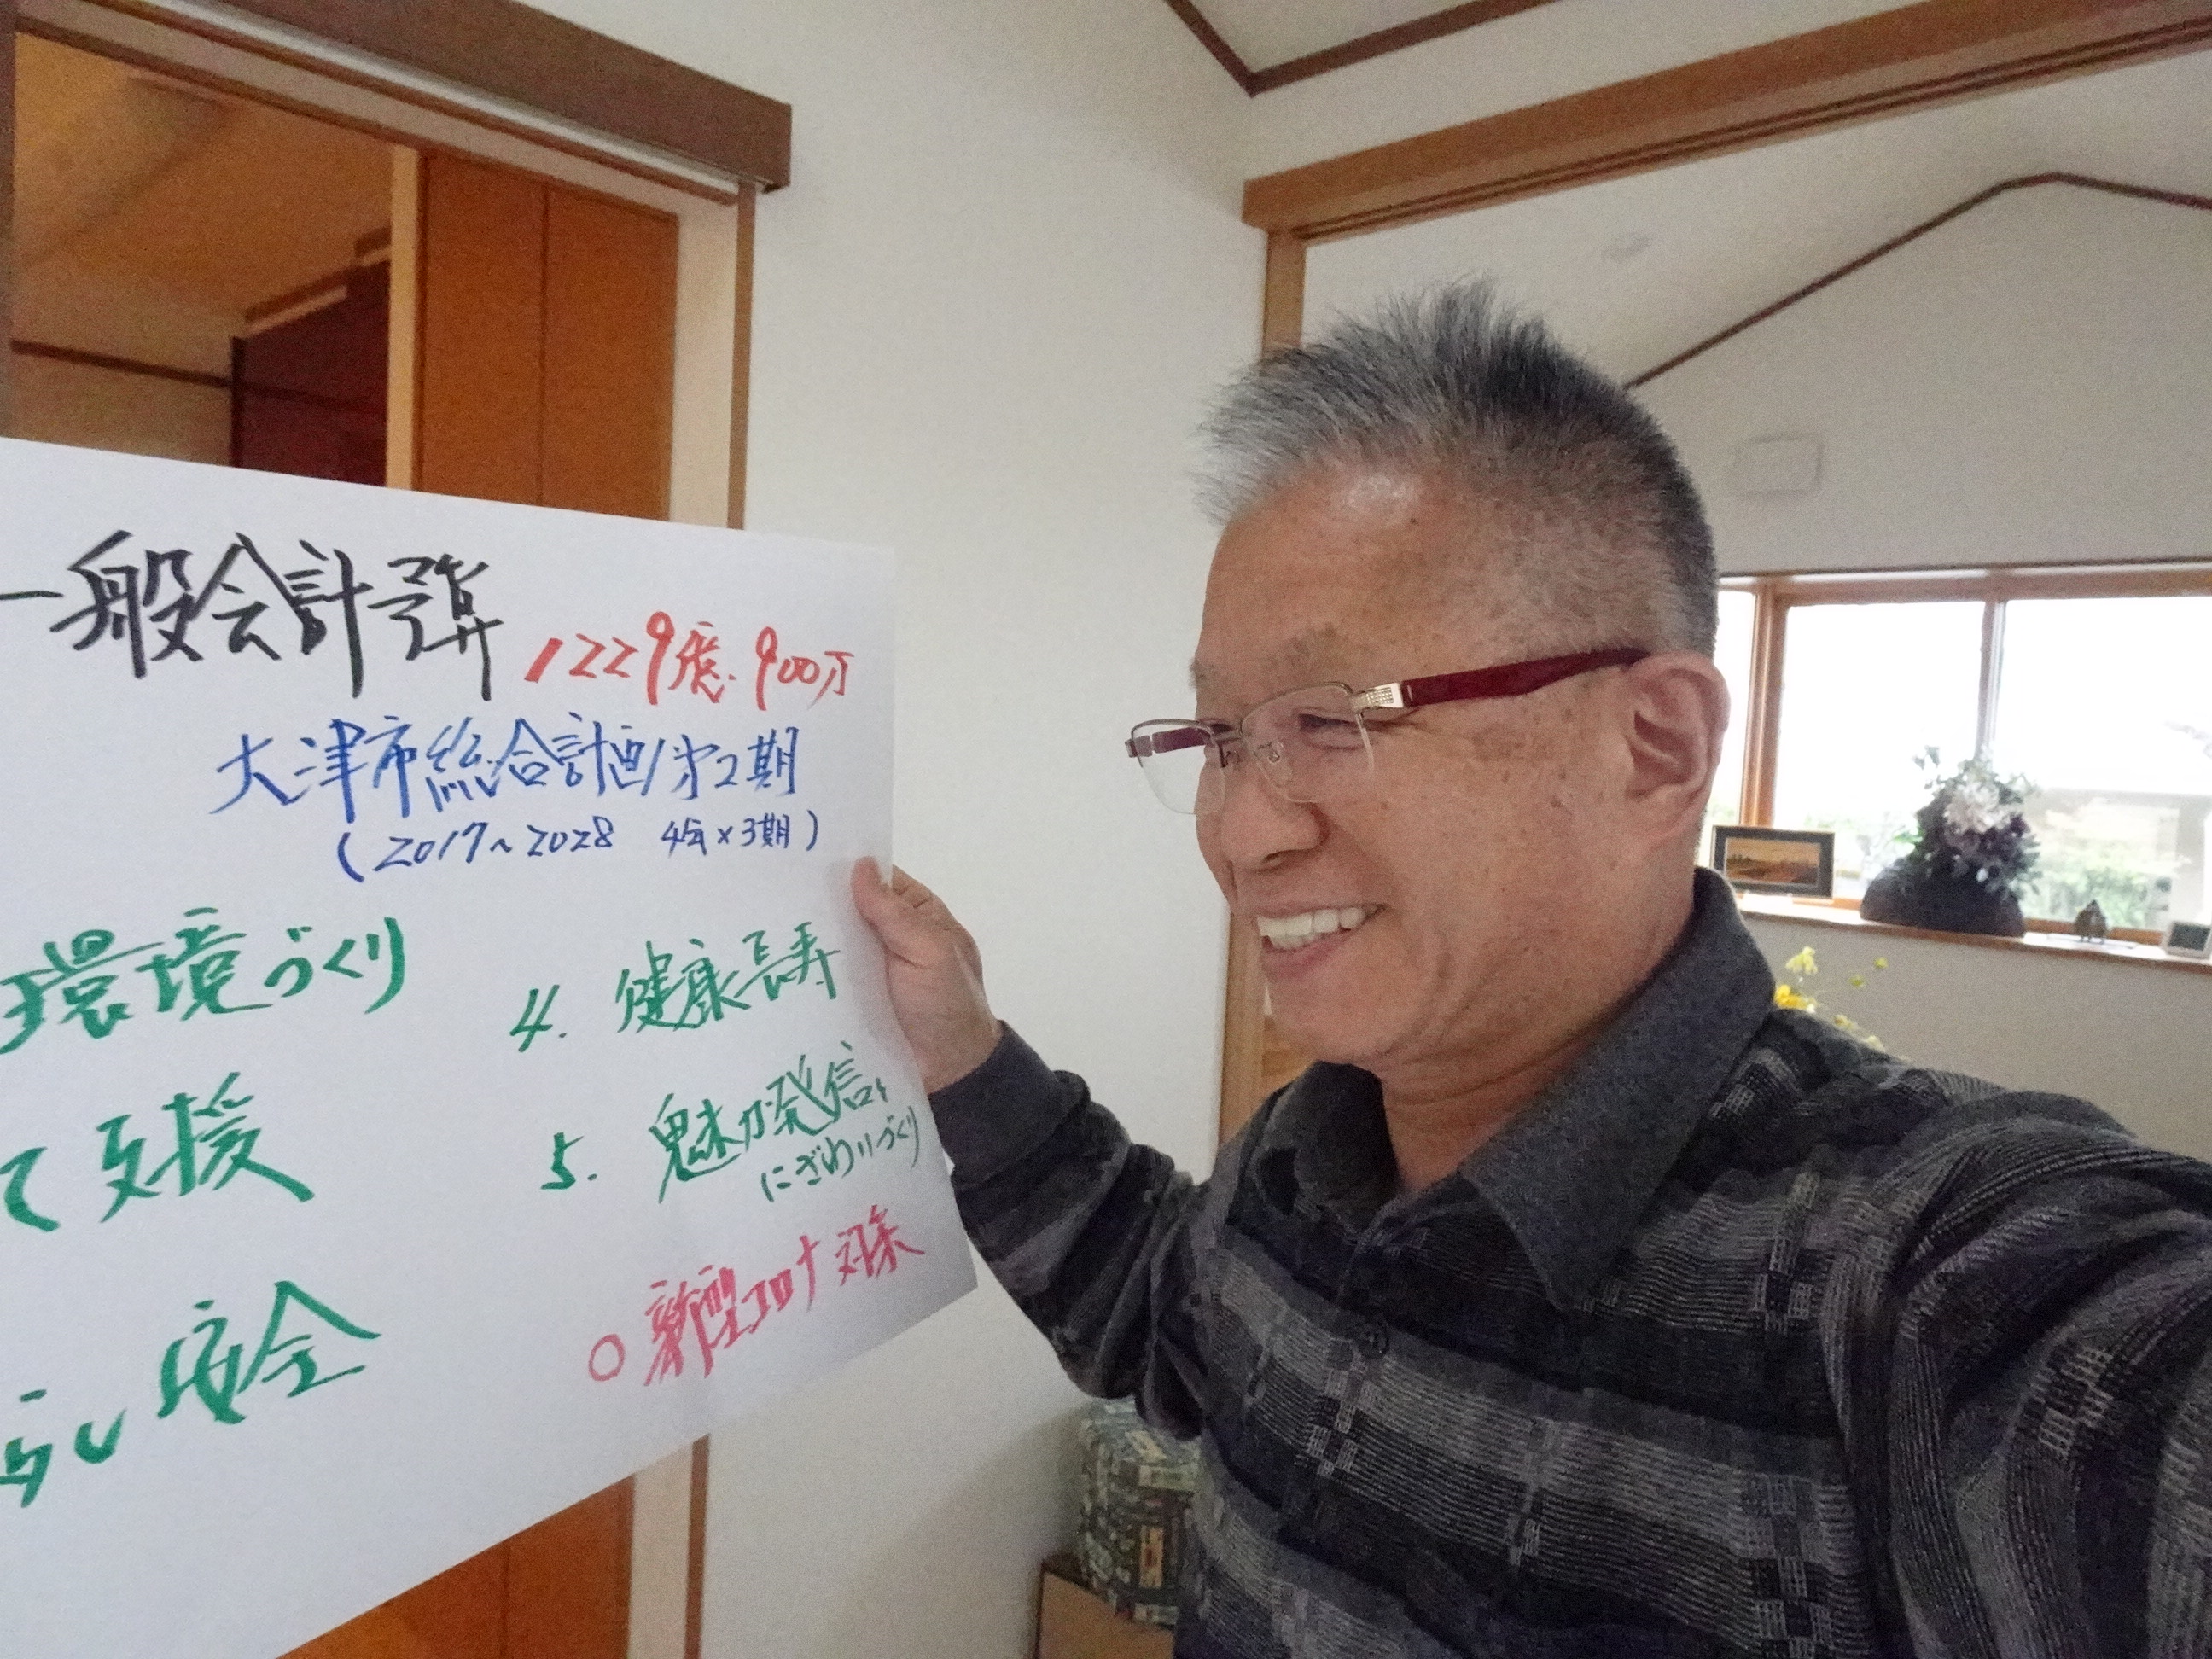 一般会計予算
1229億.900万
大津市総合計画第2期
(2017～2028 4年×3期)
環境づくり
て支援
安全
4. 健康長寿
5. 魅力発信,
にぎわいづくり
○ 新型コロナ対策